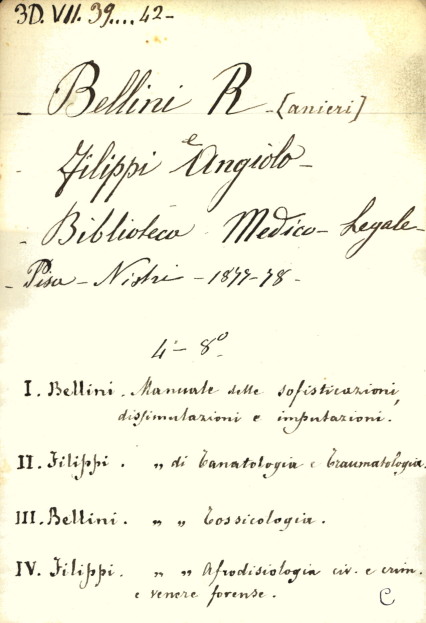 3D. VII. 39....42-
- Bellini R - [anieri]
- Filippi e Angiolo -
- Biblioteca Medico - Legale -
- Pisa - Nistri - 1877-78 -
4 - 8º
I. Bellini. Manuale delle sofisticazioni,
dissimulazioni e imputazioni.
II. Filippi. „ di Tanatologia e Traumatologia.
III. Bellini. „ „ Tossicologia.
IV. Filippi. „ „ Afrodisiologia civ. e crim.
e venere forense.
C